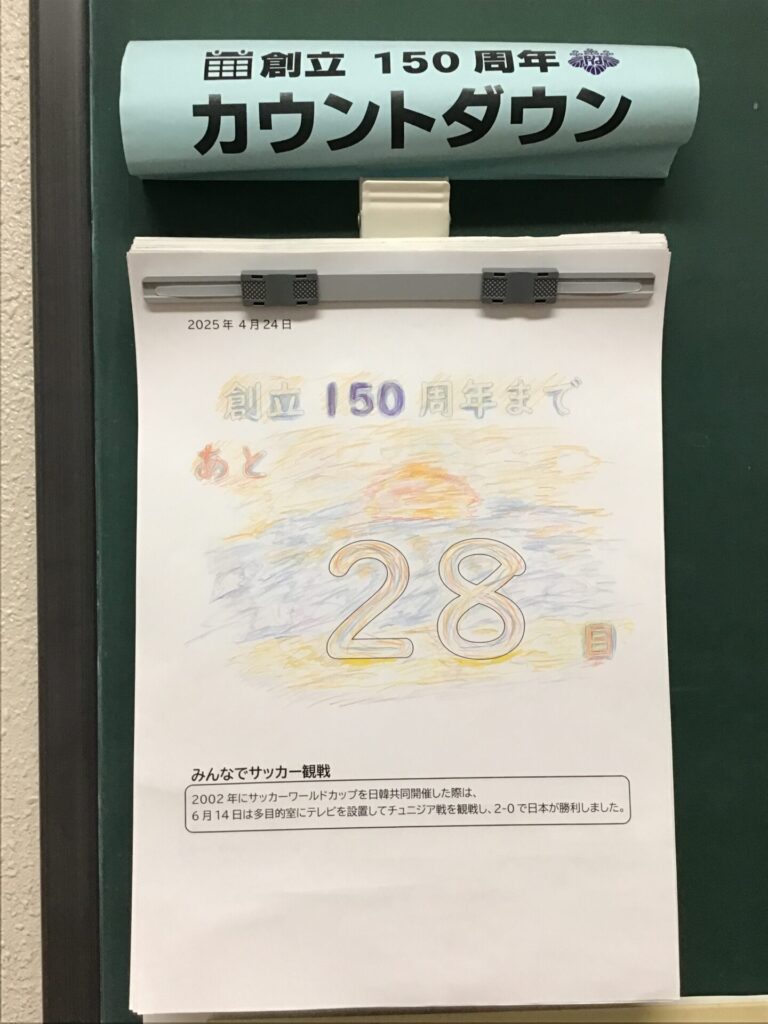 創立 150 周年
カウントダウン
2025年 4月24日
創立 150 周年まで
あと
28
日
みんなでサッカー観戦
2002 年にサッカーワールドカップを日韓共同開催した際は、
6月14日は多目的室にテレビを設置してチュニジア戦を観戦し、2-0で日本が勝利しました。